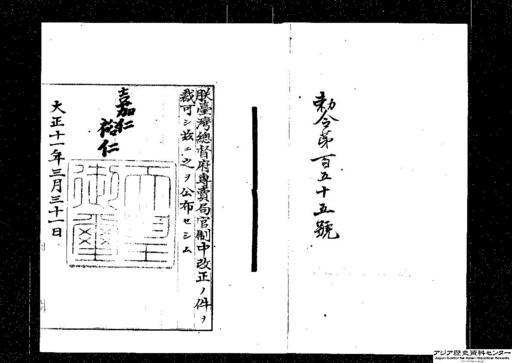 勅令第百五十五號
朕臺灣總督府專賣局官制中改正ノ件ヲ
裁可シ玆ニ之ヲ公布セシム
嘉仁
裕仁
天皇御璽
大正十一年三月三十一日
アジア歴史資料センター
Japan Center for Asian Historical Records